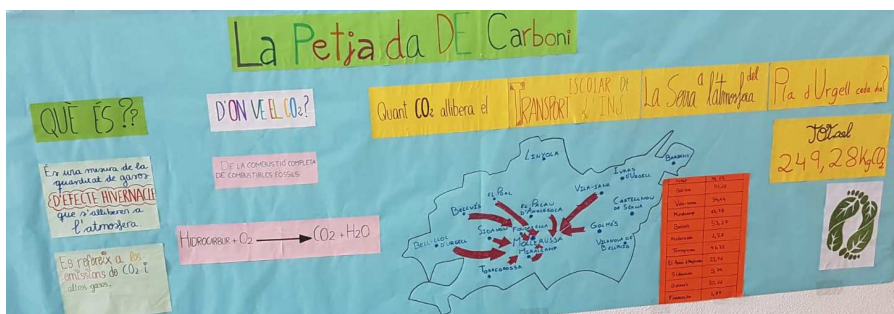 La Petjada DE Carboni
QUÈ ÉS??
És una mesura de la
quantitat de gasos
D'EFECTE HIVERNACLE
que s'alliberen a
l'atmosfera.
Es refereix a les
emissions de CO₂ i
altres gasos.
D'ON VE EL CO₂?
DE LA COMBUSTIÓ COMPLETA
DE COMBUSTIBLES FÒSSILS
HIDROCARBUR + O₂ → CO₂ + H₂O
Quant CO₂ allibera el
TRANSPORT
ESCOLAR DE
L'INS
La Serra a l'atmosfera del
Pla d'Urgell cada dia?
TOTAL
249,28 Kg CO₂
LINYOLA
BARBENS
IVARS
D'URGELL
VILA-SANA
EL POAL
EL PALAU
D'ANGLESOLA
CASTELLNOU
DE SEANA
BELLVÍS
FONDARELLA
GOLMÉS
SIDAMON
MOLLERUSSA
VILANOVA DE
BELLPUIG
BELL-LLOC
D'URGELL
MIRALCAMP
TORREGROSSA